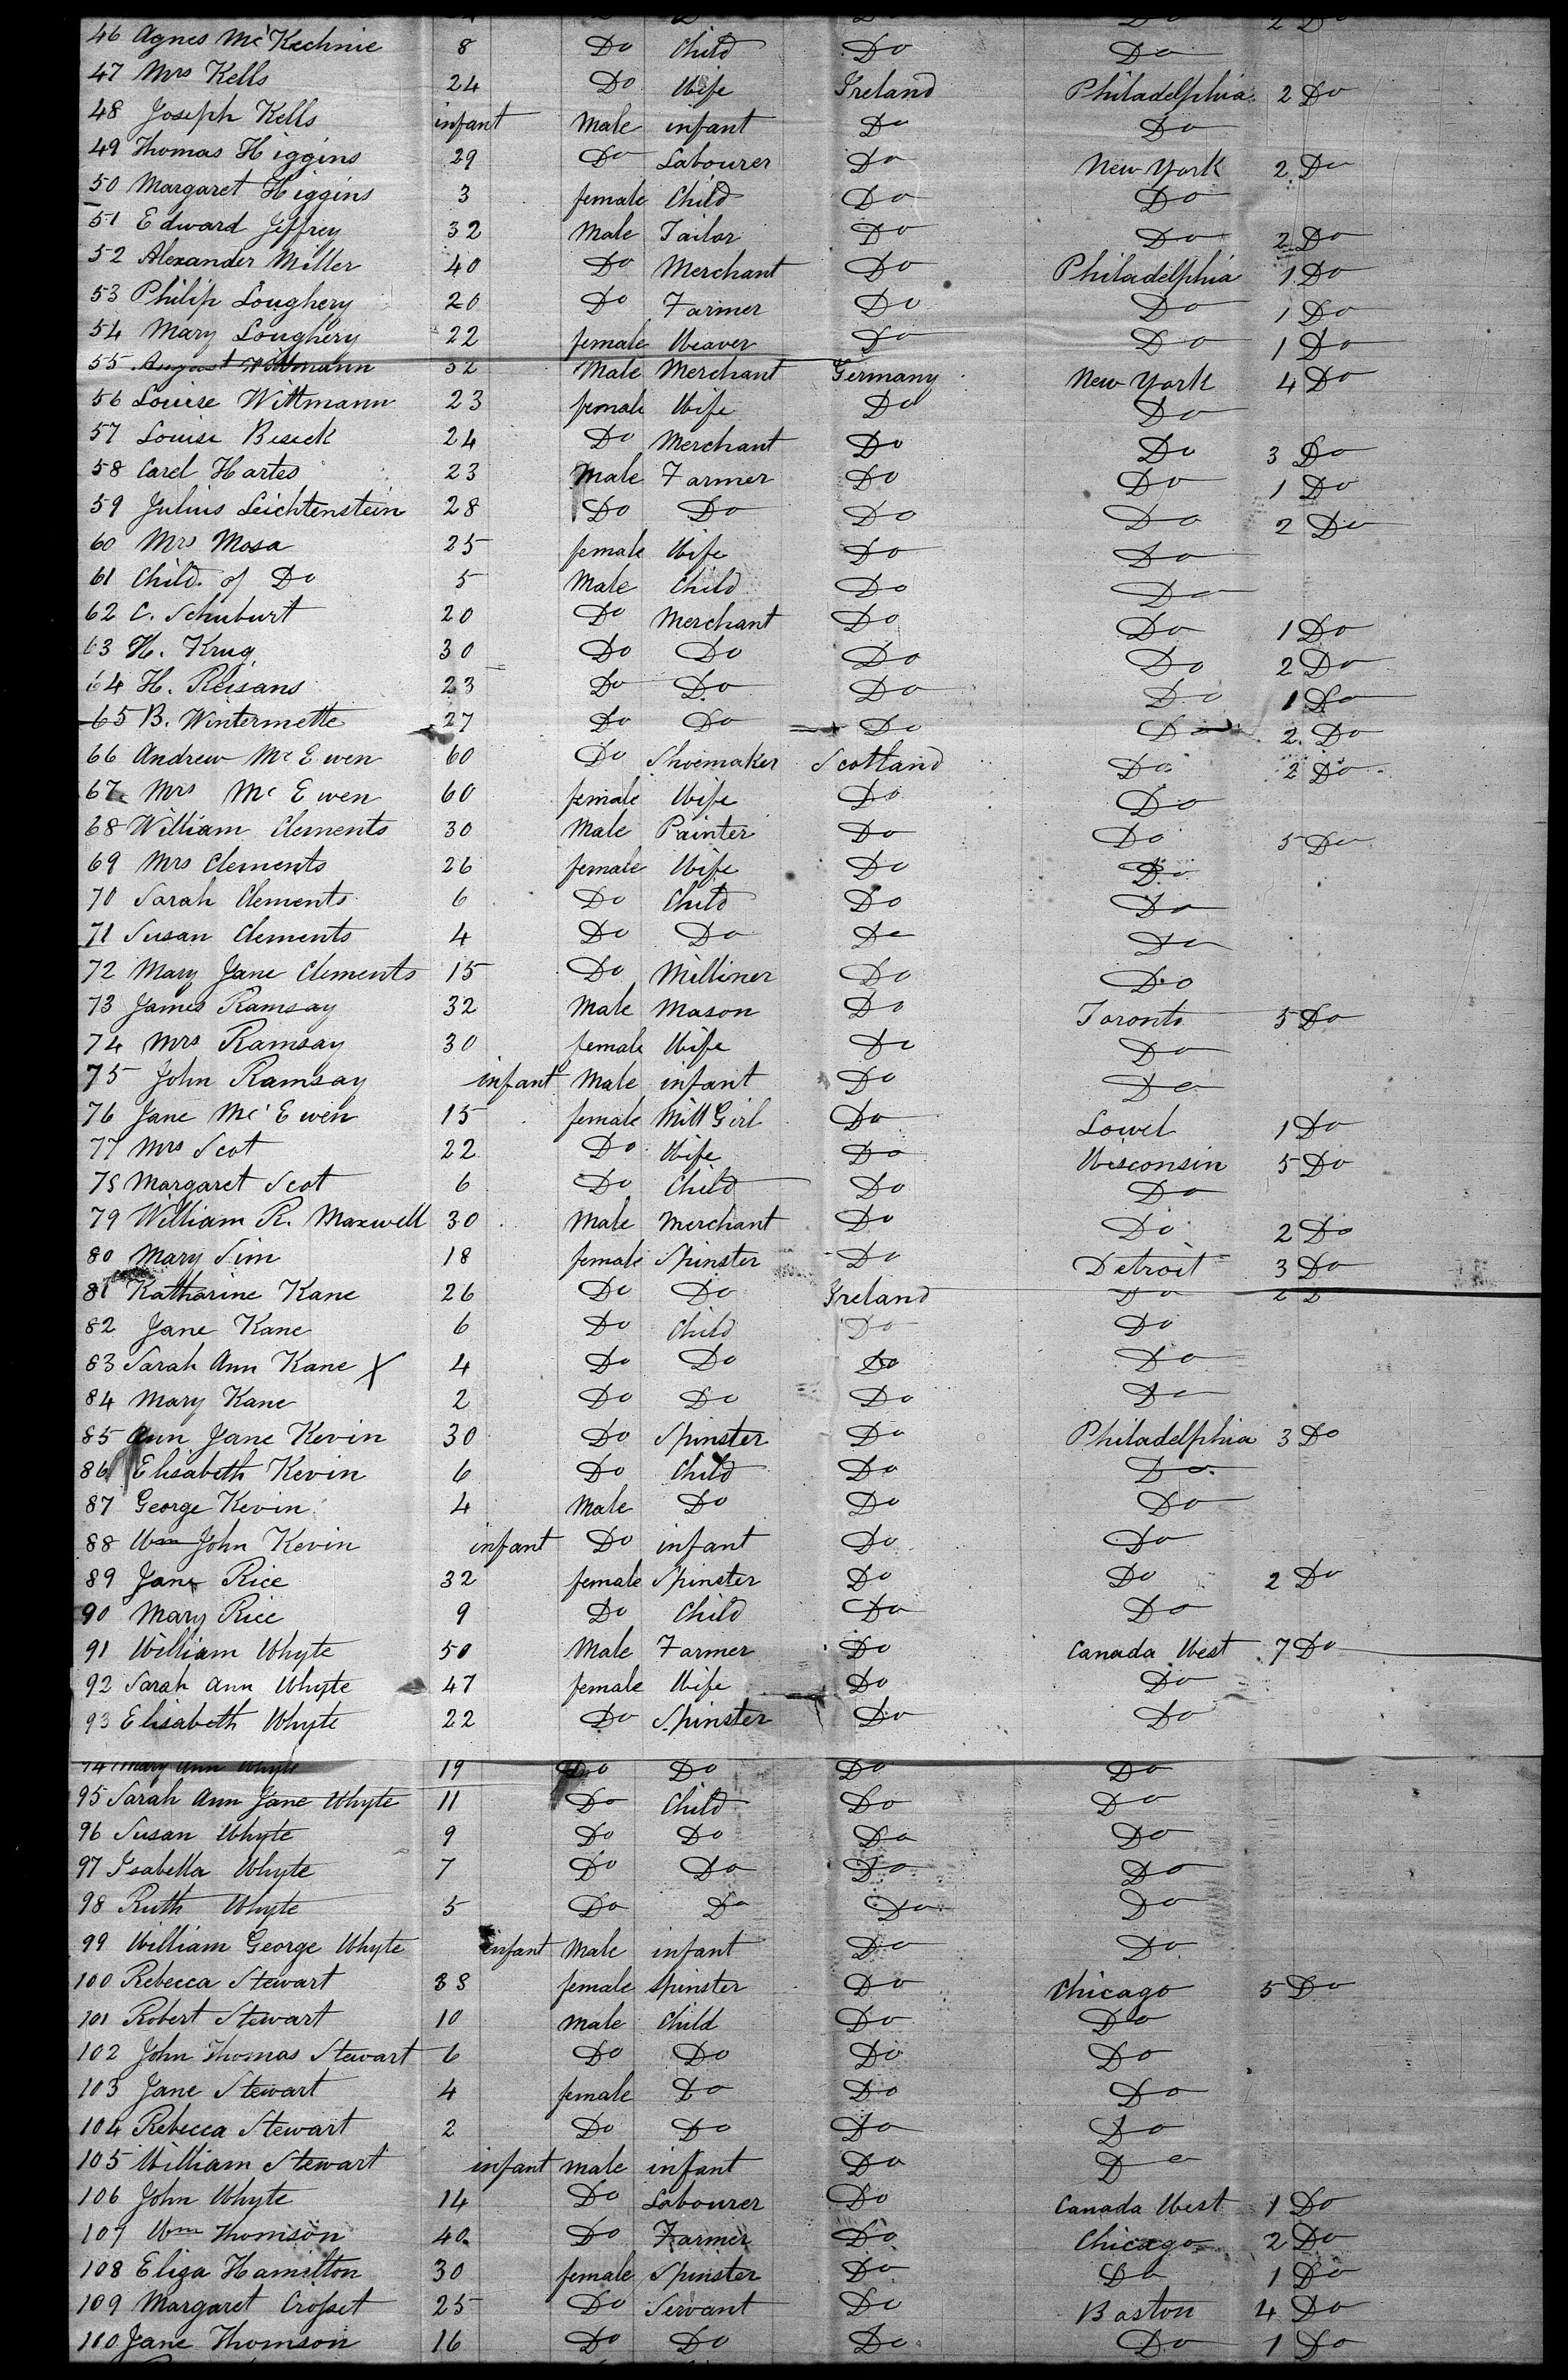 2 Do
46 Agnes Mc'Kechnie 8 Do Child Do Do
47 Mrs Kells 24 Do Wife Ireland Philadelphia 2 Do
48 Joseph Kells infant Male infant Do Do
49 Thomas Higgins 29 Do Labourer Do New York 2 Do
50 Margaret Higgins 3 female Child Do Do
51 Edward Jeffrey 32 Male Tailor Do Do 2 Do
52 Alexander Miller 40 Do Merchant Do Philadelphia 1 Do
53 Philip Loughery 20 Do Farmer Do Do 1 Do
54 Mary Loughery 22 female Weaver Do Do 1 Do
55 August Wittmann 32 Male Merchant Germany New York 4 Do
56 Louise Wittmann 23 female Wife Do Do
57 Louise Beseck 24 Do Merchant Do Do 3 Do
58 Carel Hartes 23 Male Farmer Do Do 1 Do
59 Julius Leichtenstein 28 Do Do Do Do 2 Do
60 Mrs Mosa 25 female Wife Do Do
61 Child of Do 5 Male Child Do Do
62 C. Schuburt 20 Do Merchant Do Do 1 Do
63 H. Krug 30 Do Do Do Do 2 Do
64 H. Reisans 23 Do Do Do Do 1 Do
65 B. Wintermette 27 Do Do Do Do 2 Do
66 Andrew Mc Ewen 60 Do Shoemaker Scotland Do 2 Do
67 Mrs Mc Ewen 60 female Wife Do Do
68 William Clements 30 Male Painter Do Do 5 Do
69 Mrs Clements 26 female Wife Do Do
70 Sarah Clements 6 Do Child Do Do
71 Susan Clements 4 Do Do Do Do
72 Mary Jane Clements 15 Do Milliner Do Do
73 James Ramsay 32 Male Mason Do Toronto 5 Do
74 Mrs Ramsay 30 female Wife Do Do
75 John Ramsay infant Male infant Do Do
76 Jane Mc'Ewen 15 female Mill Girl Do Lowel 1 Do
77 Mrs Scot 22 Do Wife Do Wisconsin 5 Do
78 Margaret Scot 6 Do Child Do Do
79 William R. Maxwell 30 Male Merchant Do Do 2 Do
80 Mary Sim 18 female Spinster Do Detroit 3 Do
81 Katharine Kane 26 Do Do Ireland Do 2 D
82 Jane Kane 6 Do Child Do Do
83 Sarah Ann Kane X 4 Do Do Do Do
84 Mary Kane 2 Do Do Do Do
85 Ann Jane Kevin 30 Do Spinster Do Philadelphia 3 Do
86 Elisabeth Kevin 6 Do Child Do Do
87 George Kevin 4 Male Do Do Do
88 Wm John Kevin infant Do infant Do Do
89 Jane Rice 32 female Spinster Do Do 2 Do
90 Mary Rice 9 Do Child Do Do
91 William Whyte 50 Male Farmer Do Canada West 7 Do
92 Sarah Ann Whyte 47 female Wife Do Do
93 Elisabeth Whyte 22 Do Spinster Do Do
94 Mary Ann Whyte 19 Do Do Do Do
95 Sarah Ann Jane Whyte 11 Do Child Do Do
96 Susan Whyte 9 Do Do Do Do
97 Isabella Whyte 7 Do Do Do Do
98 Ruth Whyte 5 Do Do Do Do
99 William George Whyte infant Male infant Do Do
100 Rebecca Stewart 38 female Spinster Do Chicago 5 Do
101 Robert Stewart 10 Male Child Do Do
102 John Thomas Stewart 6 Do Do Do Do
103 Jane Stewart 4 female Do Do Do
104 Rebecca Stewart 2 Do Do Do Do
105 William Stewart infant male infant Do Do
106 John Whyte 14 Do Labourer Do Canada West 1 Do
107 Wm Thomson 40 Do Farmer Do Chicago 2 Do
108 Eliza Hamilton 30 female Spinster Do Do 1 Do
109 Margaret Crosset 25 Do Servant Do Boston 4 Do
110 Jane Thomson 16 Do Do Do Do 1 Do